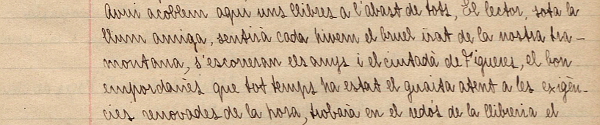 Avui acoblem aquí uns llibres a l'abast de tots, El lector, sota la
llum amiga, sentirà cada hivern el bruel irat de la nostra tra-
montana, s'escorreran els anys i el ciutadà de Figueres, el bon
empordanès que tot temps ha estat el guaita atent a les exigèn-
cies renovades de la hora, trobarà en el redós de la llibreria el